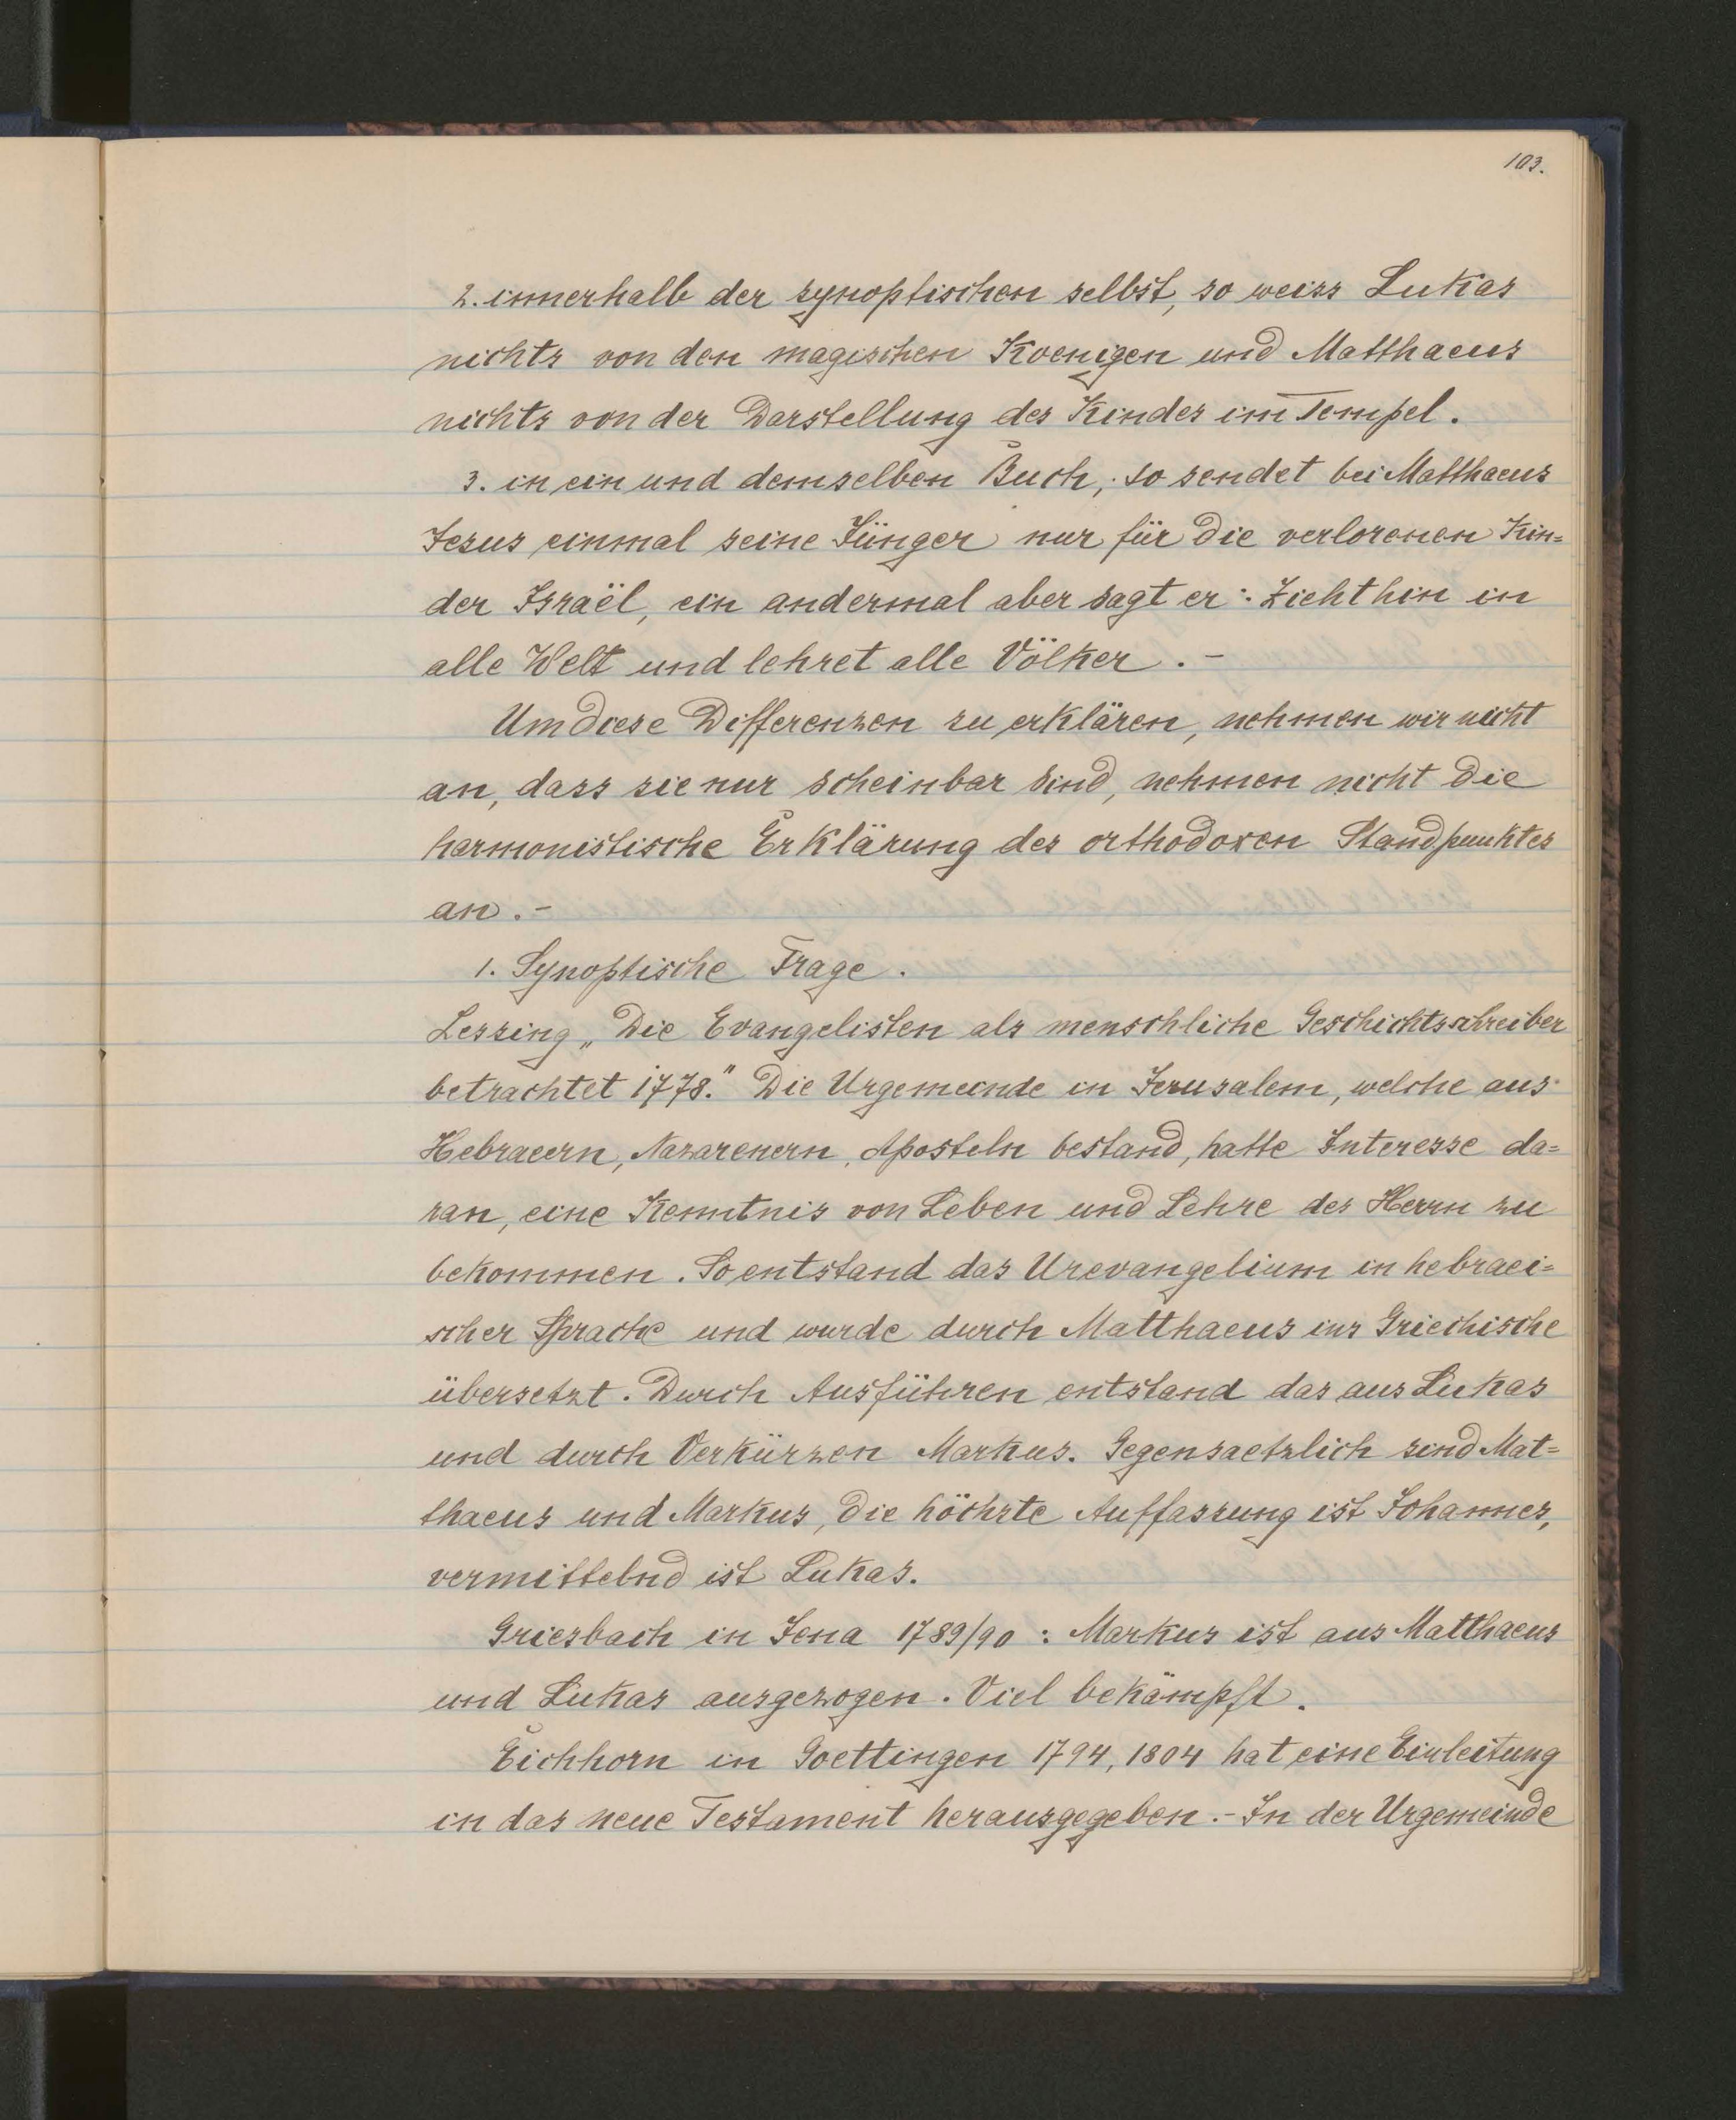 103.
2. innerhalb der synoptischen selbst, so weiss Lukas
nichts von den magischen Koenigen und Matthaeus
nichts von der Darstellung des Kindes im Tempel.
3. in ein und demselben Buch, so sendet bei Matthaeus
Jesus einmal seine Jünger nur für die verlorenen Kin=
der Israël, ein andermal aber sagt er: Zieht hin in
alle Welt und lehret alle Völker. -
Um diese Differenzen zu erklären, nehmen wir nicht
an, dass sie nur scheinbar sind, nehmen nicht die
harmonistische Erklärung des orthodoxen Standpunktes
an. -
1. Synoptische Frage.
Lessing „Die Evangelisten als menschliche Geschichtsschreiber
betrachtet 1778." Die Urgemeinde in Jerusalem, welche aus
Hebraeern, Nazarenern, Aposteln bestand, hatte Interesse da=
ran, eine Kenntnis von Leben und Lehre des Herrn zu
bekommen. So entstand das Urevangelium in hebraei=
scher Sprache und wurde durch Matthaeus ins Griechische
übersetzt. Durch Ausführen entstand das aus Lukas
und durch Verkürzen Markus. Gegensaetzlich sind Mat=
thaeus und Markus, die höchste Auffassung ist Johannes,
vermittelnd ist Lukas.
Griesbach in Jena 1789/90: Markus ist aus Matthaeus
und Lukas ausgezogen. Viel bekämpft.
Eichhorn in Goettingen 1794, 1804 hat eine Einleitung
in das neue Testament herausgegeben. - In der Urgemeinde